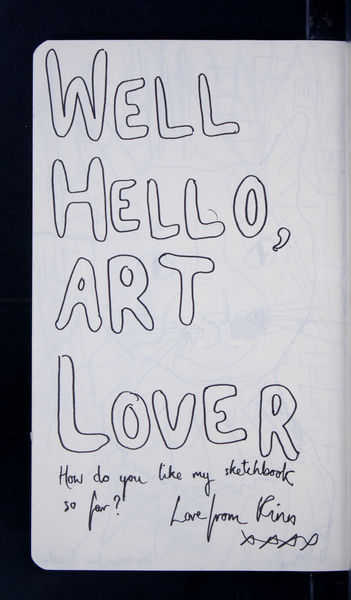 WELL
HELLO,
ART
LOVER
How do you like my sketchbook
so far? Love from
xxxx